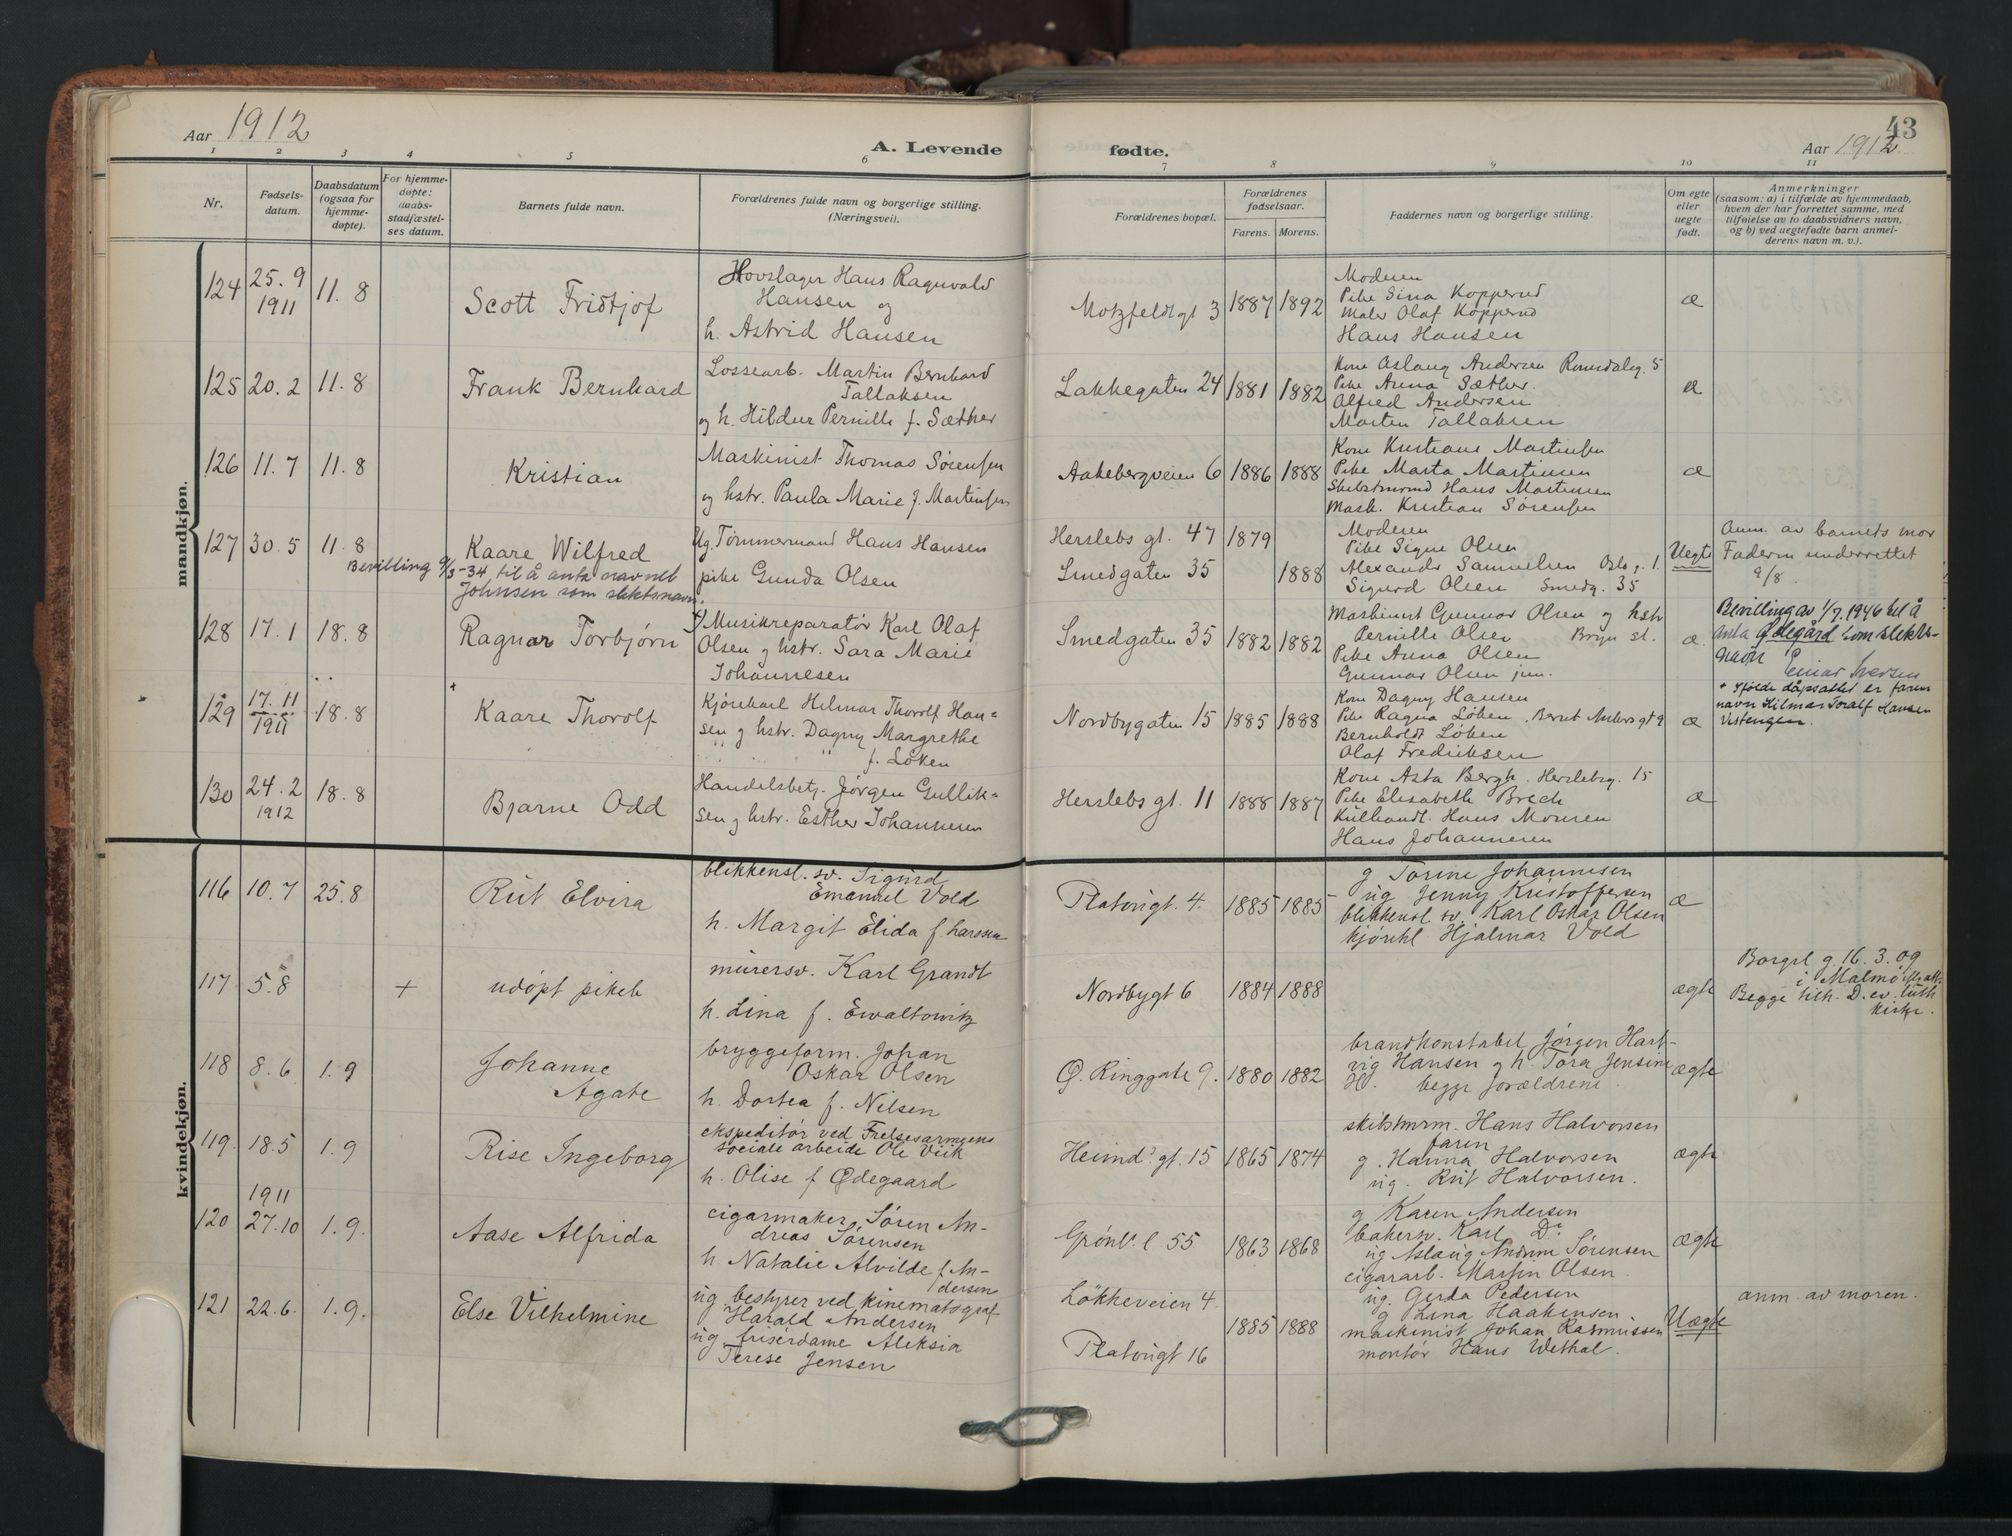 Aar 1912
A. Levende
fødte.
Aar 1912
43
1 2 3 4 5 6 7 8 9 10 11
Nr.
Fødsels-
datum.
Daabsdatum
(ogsaa for
hjemme-
døpte).
For hjemme-
døpte:
daabs-
stadfæstel-
ses datum.
Barnets fulde navn.
Forældrenes fulde navn og borgerlige stilling.
(Næringsvei).
Forældrenes bopæl.
Forældrenes
fødselsaar.
Farens. Morens.
Faddernes navn og borgerlige stilling.
Om egte
eller
uegte
født.
Anmerkninger
(saasom: a) i tilfælde av hjemmedaab,
hvem der har forrettet samme, med
tilføielse av to daabsvidners navn,
og b) ved uegtefødte barn anmel-
derens navn m. v.).
mandkjøn.
124 25.9 1911 11.8
Scott Fridtjof
Hovslager Hans Ragnvald
Hansen og
h. Astrid Hansen
Motzfeldtgt 3 1887 1892
Moderen
Pike Sina Kopperud
Maler Olaf Kopperud
Hans Hansen
æ
125 20.2 11.8
Frank Bernhard
Lossearb. Martin Bernhard
Tallaksen
og h. Hildur Pernille f. Sæther
Lakkegaten 24 1881 1882
Kone Aslaug Andersen Romsdalsg. 5
Pike Anna Sæther.
Alfred Andersen
Morten Tallaksen
æ
126 11.7 11.8
Kristian
Maskinist Thomas Sørensen
og hstr. Paula Marie f. Martinsen
Aakebergveien 6 1886 1888
Kone Kristiane Martinsen
Pike Marta Martinsen
Skibstmrmd Hans Martinsen
Mask. Kristian Sørensen
æ
127 30.5 11.8
Kaare Wilfred
Bevilling 9/3-34, til å anta navnet
Johnsen som slektsnavn.
Ug. Tømmermand Hans Hansen
pike Gunda Olsen
Herslebs gt. 47 1879
Smedgaten 35 1888
Moderen
Pike Signe Olsen
Alexander Samuelsen Oslo g. 1.
Sigurd Olsen Smedg. 35
Uegte
Anm. av barnets mor
Faderen underrettet
9/8.
128 17.1 18.8
Ragnar Torbjørn
Musikreparatør Karl Olaf
Olsen og hstr. Sara Marie
Johannesen
Smedgaten 35 1882 1882
Maskinist Gunnar Olsen og hstr
Pernille Olsen Bryn st.
Pike Anna Olsen
Gunnar Olsen jun.
æ.
Bevilling av 1/7.1946 til å
anta Ødegård som slekts-
navn Einar Iversen
129 17.11 1911 18.8
Kaare Thorolf
Kjørekarl Hilmar Thorolf Han=
sen og hstr. Dagny Margrethe
f. Løken
Nordbygaten 15 1885 1888
Kone Dagny Hansen
Pike Ragna Løken. Bernt Ankersgt 9
Bernholdt Løken
Olaf Fredriksen
æ
+ Ifølge dåpsattest er farens
navn Hilmar Toralf Hansen
Vestengen.
130 24.2 1912 18.8
Bjarne Odd
Handelsbetj. Jørgen Gullik=
sen og hstr. Esther Johannesen
Herslebs gt. 11 1888 1887
Kone Asta Bergh. Herslebsg. 15
Pike Elisabeth Brech
Kulhandl. Hans Monsen
Hans Johannesen
æ
kvindekjøn.
116 10.7 25.8
Rut Elvira
blikkensl. sv. Sigurd
Emanuel Vold
h. Margit Elida f. Larssen
Platougt. 4. 1885 1885
g Torine Johannesen
ug Jenny Kristoffersen
blikkensl sv. Karl Oskar Olsen
kjørekl Hjalmar Vold
æ
117 5.8 +
udøpt pikeb
murersv. Karl Grandt
h. Lina f. Ewaltowitz
Nordbygt 6 1884 1888
ægte
Borgel g. 16.3.09
i Malmø iflg att.
Begge tilh. D. ev. luth
kirke.
118 8.6 1.9
Johanne
Agate
bryggeform. Johan
Oskar Olsen
h. Dortea f. Nilsen
Ø. Ringgate 9. 1880 1882
brandkonstabel Jørgen Hart-
vig Hansen og h. Tora Jensine
H. begge forældrene.
ægte
119. 18.5 1.9
Rise Ingeborg
ekspeditør ved Frelsesarmeens
sociale arbeide Ole Viik
h. Olise f Ødegaard
Heimd. gt. 15 1865 1874
skibstmrm. Hans Halvorsen
faren
g. Hanna Halvorsen
ug. Rut Halvorsen.
ægte
120 1911 27.10 1.9.
Aase Alfrida
cigarmaker Søren An-
dreas Sørensen
h. Natalie Alvilde f An-
dersen
Grønl. l 55 1863 1868
g Karen Andersen
bakerm. Karl Do
ug Aslaug Andrine Sørensen
cigararb. Martin Olsen.
ægte
121 22.6. 1.9.
Else Vilhelmine
ug bestyrer ved kinematograf
Harald Andersen
ug friserdame Aleksia
Terese Jensen
Løkkeveien 4.
Platougt 16
1885 1888
ug. Gerda Pedersen
g Lina Haakensen
maskinist Johan Rasmussen
montør Hans Wethal.
Uægte
anm. av moren.